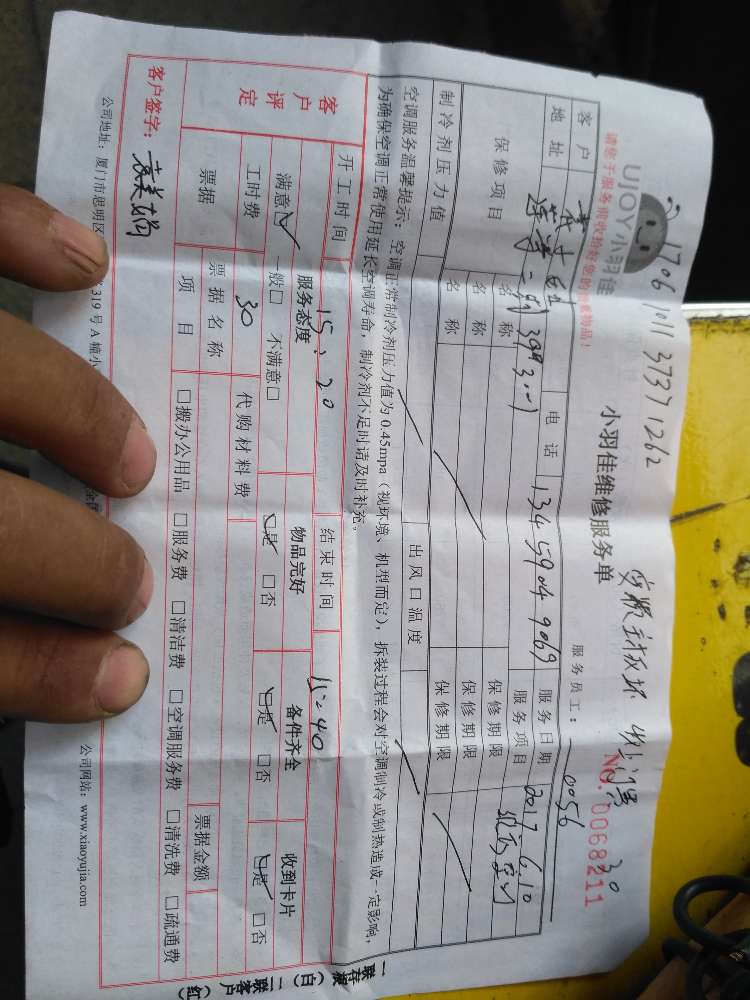 1706101137371262
UJOY小羽佳
小羽佳维修服务单
NO. 0068211
30
请您于服务前收拾好您的贵重物品！
服务员工：
0056
客户
电话
13459049069
服务日期
2017.6.10
地址
服务项目
保修项目
名称
保修期限
名称
保修期限
名称
保修期限
制冷剂压力值
出风口温度
空调服务温馨提示：空调正常制冷剂压力值为0.45mpa（视环境、机型而定），拆装过程会对空调制冷或制热造成一定影响，
为确保空调正常使用延长空调寿命，制冷剂不足时请及时补充。
开工时间
15:20
结束时间
15:40
客户评定
服务态度
物品完好
备件齐全
收到卡片
满意☑ 一般□ 不满意□
☑是 □否
☑是 □否
☑是 □否
工时费
30
代购材料费
票据
票据名称
票据金额
项目
□搬办公用品 □服务费 □清洁费 □空调服务费 □清洗费 □疏通费
客户签字：
公司地址：厦门市思明区
319号A幢小
公司网站：www.xiaoyujia.com
一联存根（白）二联客户（红）